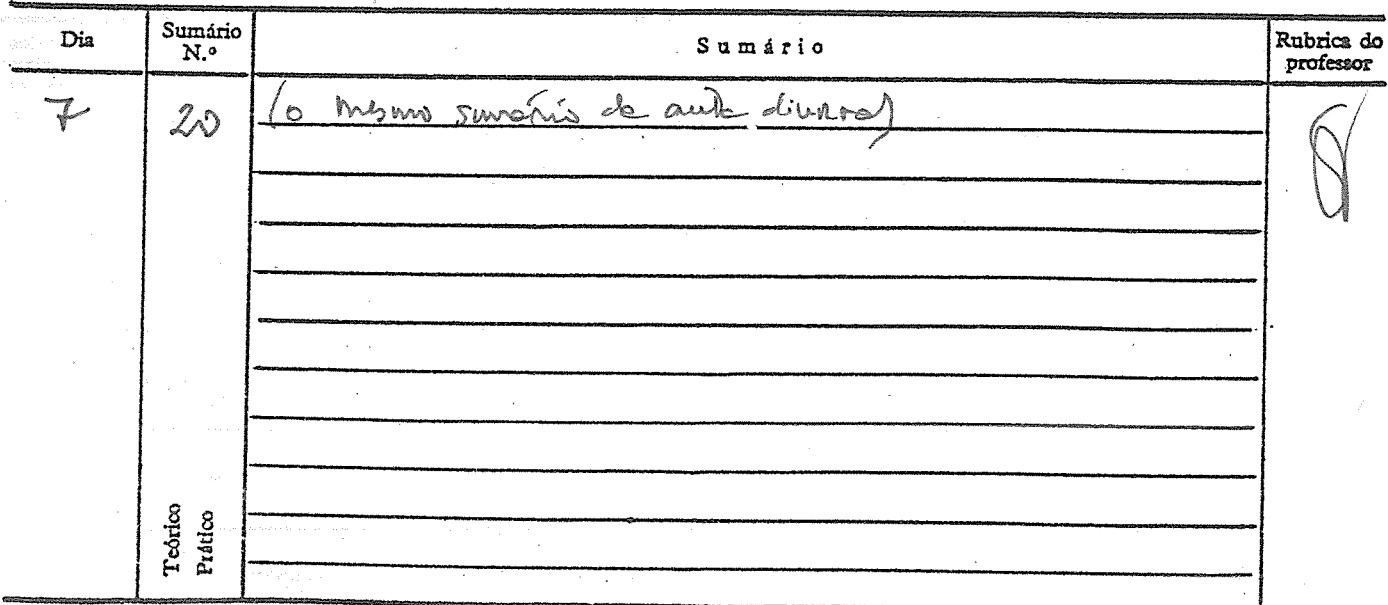 Dia
Sumário N.º
Sumário
Rubrica do professor
7
20
(o mesmo sumário da aula diurna)
Teórico
Prático